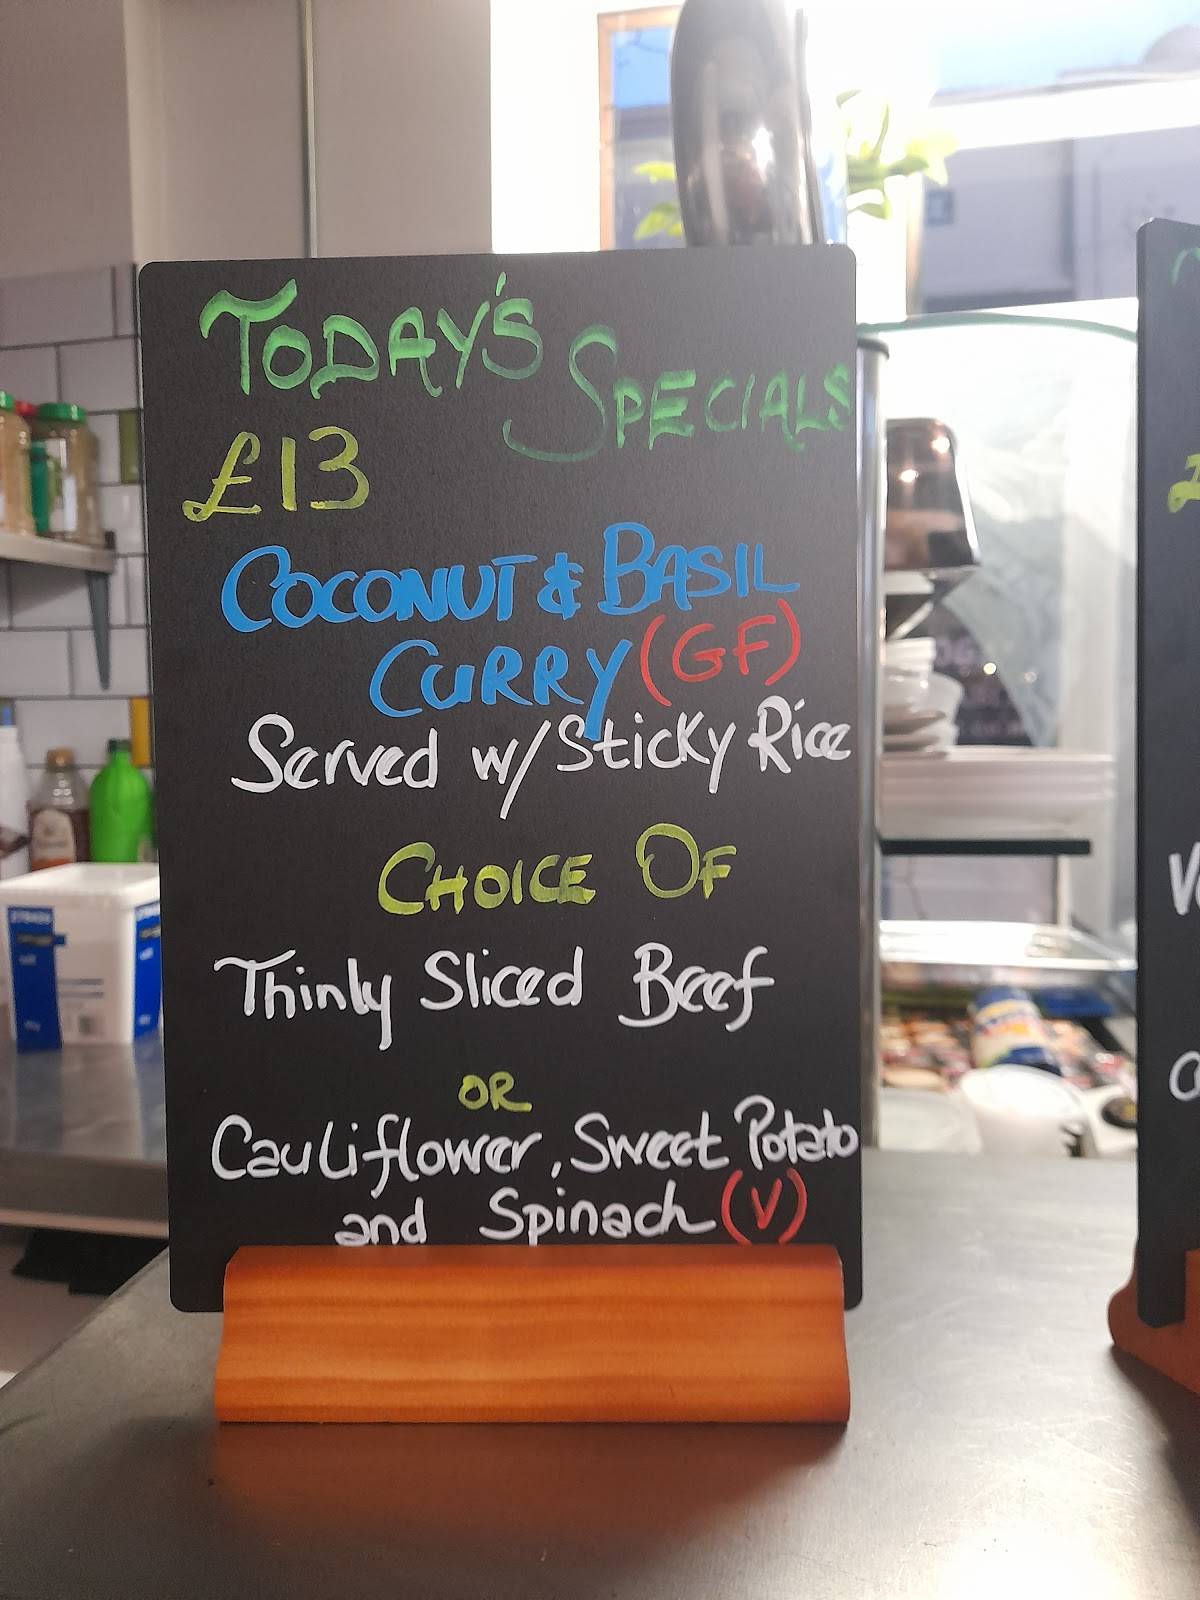 TODAY'S SPECIALS
£13
COCONUT & BASIL
CURRY (GF)
Served w/ Sticky Rice
CHOICE OF
Thinly Sliced Beef
OR
Cauliflower, Sweet Potato
and Spinach (V)